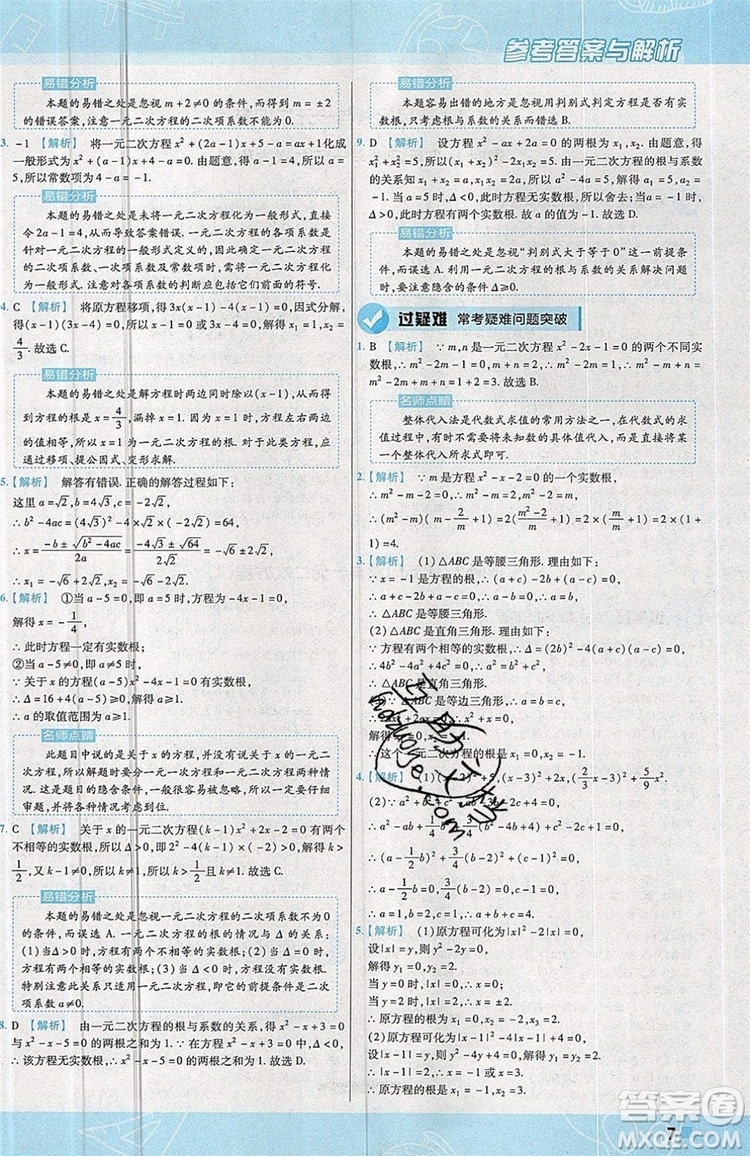 参考答案与解析
易错分析
本题的易错之处是忽视 m+2≠0 的条件,而得出 m=±2
的错误答案,注意一元二次方程的二次项系数不能为 0.
3. -1 【解析】 将一元二次方程 x²+(2a-1)x+5-a=ax+1 化成
一般形式为 x²+(a-1)x+4-a=0. 由题意,得 a-1=4,所以 a=
5,所以常数项为 4-a=-1.
易错分析
本题的易错之处是未将一元二次方程化为一般形式,直接
令 2a-1=4,从而导致答案错误. 一元二次方程的各项系数是
针对一元二次方程的一般形式定义的,因此在确定一元二次方
程的二次项系数、一次项系数及常数项时,需先将方程化为一
般形式. 注意方程各系数的判断应包括它们前面的符号.
4. C 【解析】 将原方程移项,得 3x(x-1)-4(x-1)=0,因式分解,
得(x-1)(3x-4)=0,所以 x-1=0 或 3x-4=0,解得 x₁=1,x₂=
4/3. 故选 C.
易错分析
本题的易错之处是解方程时两边同时除以(x-1),从而
得到方程的根为 x=4/3,漏掉 x=1 的根. 只有在方程左右两边
的值相等时,未知数的值才是方程的根. 对于此类方程,应先移
项、提公因式、变形求解.
5. 【解析】 解答有错误. 正确的解答过程如下:
这里 a=√2,b=4√3,c=-2√2,
∴ b²-4ac=(4√3)²-4×√2×(-2√2)=64,
∴ x=(-b±√(b²-4ac))/2a=(-4√3±√64)/2√2,
∴ x₁=-√6+2√2,x₂=-√6-2√2.
6. 【解析】 ①当 a-5=0,即 a=5 时,方程为 -4x-1=0,
解得 x=-1/4,
∴ 此时方程一定有实数根;
②当 a-5≠0,即 a≠5 时,
∵ 关于 x 的方程(a-5)x²-4x-1=0 有实数根,
∴ Δ=16+4(a-5)≥0,解得 a≥1.
∴ a 的取值范围为 a≥1.
名师点睛
此题目中说的是关于 x 的方程,并没有说关于 x 的一元二
次方程,所以解题时要分一元一次方程和一元二次方程两种情
况. 此题目的隐含条件很容易被忽略,所以在审题时一定要仔细
审题,并将各种情况都考虑到位.
7. C 【解析】 关于 x 的一元二次方程(k-1)x²+2x-2=0 有两个
不相等的实数根,所以 Δ=2²-4(k-1)×(-2)>0,且 k-1≠0,解
得 k>1/2 且 k≠1. 故选 C.
易错分析
本题的易错之处是忽视一元二次方程的二次项系数不为 0
的条件. 一元二次方程的根的情况与 Δ 的关系:
(1)当 Δ>0 时,方程有两个不相等的实数根;(2)当 Δ=0 时,
方程有两个相等的实数根;(3)当 Δ<0 时,方程没有实数根.
特别注意方程为一元二次方程,即方程有两个根时,要保证二
次项系数 a≠0.
8. D 【解析】 由一元二次方程的根与系数的关系,得 x²-x+3=0
与 x²-x-5=0 的两根之和为 1. ∵ 在方程 x²-x+3=0 中,Δ<0,
∴ 该方程无实数根,∴ x²-x-5=0 的两根之和为 1. 故选 D.
易错分析
本题容易出错的地方是忽视用判别式判定方程是否有实
数根,只考虑根与系数的关系而错选 B.
9. D 【解析】 设方程 x²-ax+2a=0 的两根为 x₁,x₂,由题意,得
x₁²+x₂²=5,所以(x₁+x₂)²-2x₁x₂=5. 由一元二次方程的根与系数
的关系知 x₁+x₂=a,x₁x₂=2a,所以 a²-4a-5=0,解得 a₁=5,
a₂=-1. 当 a=5 时,Δ<0,方程无实数根,所以舍去;当 a=-1
时,Δ>0,方程有两个不相等的实数根. 故 a=-1. 故选 D.
易错分析
本题的易错之处是忽视“判别式大于等于 0”这一前提条
件,而误选 A. 利用一元二次方程的根与系数的关系解决问题
时,要注意隐含的条件 Δ≥0.
过疑难 常考疑难问题突破
1. B 【解析】 ∵ m,n 是一元二次方程 x²-2x-1=0 的两个不同实
数根,∴ m²-2m-1=0,即 m²-2m=1. 由根与系数的关系知 m+n=2,
∴ m²-m+n=m²-2m+m+n=1+2=3. 故选 B.
名师点睛
整体代入法是代数式求值的常用方法之一,在代数式的求
值过程中,有时只要将条件变形,便可以直接或间接地将某一
个整体代入所求式即可.
2. 【解析】 ∵ m 是方程 x²-x-2=0 的一个实数根,
∴ m²-m-2=0,∴ m²-m=2,m²-2=m,
3. 【解析】 (1)△ABC 是等腰三角形. 理由如下:
∵ x=-1 是方程的根,
∴ a+c-2b+a-c=0,∴ a-b=0,∴ a=b,
∴ △ABC 是等腰三角形.
(2)△ABC 是直角三角形. 理由如下:
∵ 方程有两个相等的实数根,∴ Δ=(2b)²-4(a+c)(a-c)=0,
∴ 4b²-4a²+4c²=0,∴ a²=b²+c²,
∴ △ABC 是直角三角形.
∴ 这个一元二次方程的根为 x₁=0,x₂=-1.
5. 【解析】 (1)原方程可化为|x|²-2|x|=0,
设|x|=y,则 y²-2y=0.
解得 y₁=0,y₂=2.
当 y=0 时,|x|=0,∴ x=0;
当 y=2 时,∴ x=±2.
∴ 原方程的解是 x₁=0,x₂=-2,x₃=2.
(2)原方程可化为|x-1|²-4|x-1|+4=0,
设|x-1|=y,则 y²-4y+4=0,解得 y₁=y₂=2.
即|x-1|=2,∴ x=-1 或 x=3.
∴ 原方程的解是 x₁=-1,x₂=3.
答案圈
MXQE.COM
7